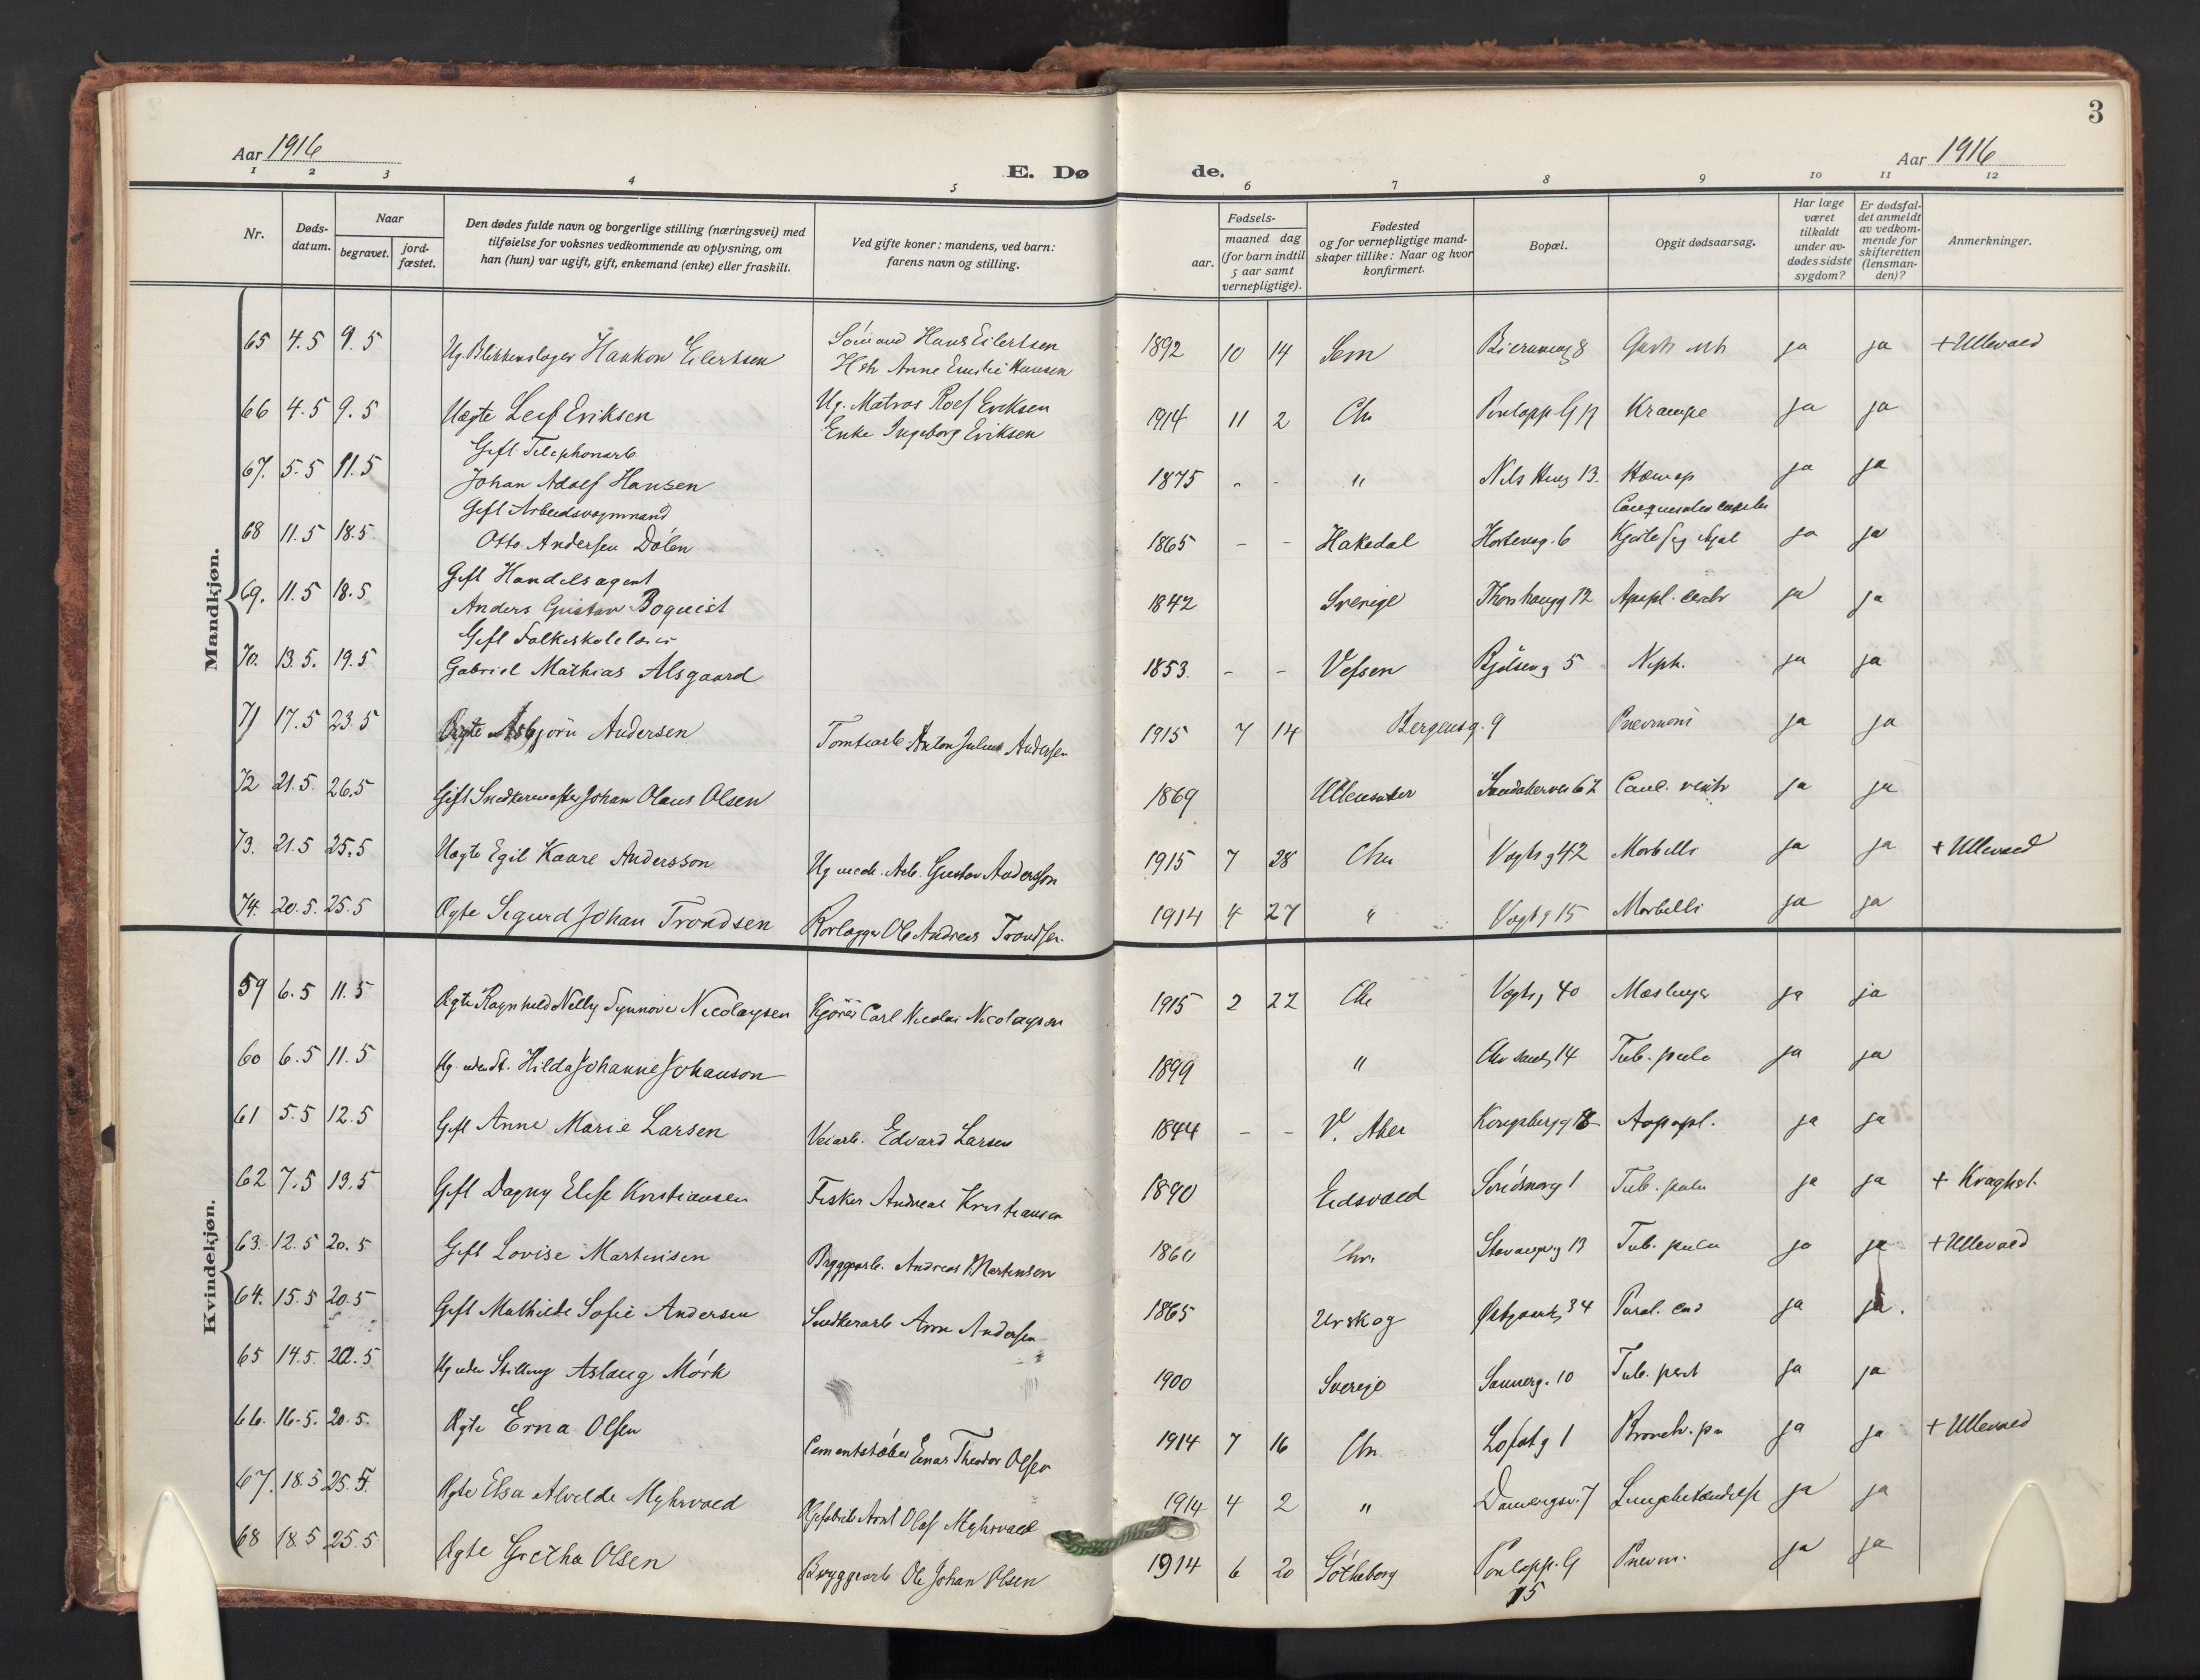 3
Aar 1916
E. Dø de.
Aar 1916
1 2 3 4 5 6 7 8 9 10 11 12
Nr.
Døds-
datum.
Naar
begravet.
jord-
fæstet.
Den dødes fulde navn og borgerlige stilling (næringsvei) med
tilføielse for voksnes vedkommende av oplysning, om
han (hun) var ugift, gift, enkemand (enke) eller fraskilt.
Ved gifte koner: mandens, ved barn:
farens navn og stilling.
Fødsels-
aar.
maaned dag
(for barn indtil
5 aar samt
vernepligtige).
Fødested
og for vernepligtige mand-
skaper tillike: Naar og hvor
konfirmert.
Bopæl.
Opgit dødsaarsag.
Har læge
været
tilkaldt
under av-
dødes sidste
sygdom?
Er dødsfal-
det anmeldt
av vedkom-
mende for
skifteretten
(lensman-
den)?
Anmerkninger.
Mandkjøn.
Sömand Hans Eilertsen
65 4.5 9.5 Ug. Blikkenslager Haakon Eilertsen 1892 10 14 Sem ja ja + Ullevaal
Anne Emilie Hansen
Ug. Matros Rolf Eriksen
66 4.5 9.5 Uægte Leif Eriksen 1914 11 2 Chr Krampe ja ja
Enke Ingeborg Eriksen
Gift Telephonarb
67. 5.5 11.5 Johan Adolf Hansen 1875 - - " 13. ja ja
Gift Arbeidsvognmand
68 11.5 18.5 Otto Andersen Dölen 1865 - - Hakedal 6 ja ja
Gift Handelsagent
69. 11.5 18.5 Anders Gustav Boquist 1842 Sverige 12 Apopl. cerebr ja ja
Gift Folkeskolelærer
70. 13.5. 19.5 Gabriel Mathias Alsgaard 1853. - - Vefsen Bjölseng 5 Neph. ja ja
71 17.5 23.5 Ægte Asbjörn Andersen Tomtearb. Anton Julius Andersen 1915 7 14 Bergensg. 9 Pnevmoni ja ja
72 21.5 26.5 Gift Snedkermester Johan Olaus Olsen 1869 Ullensaker Sandakervei 62 Canc. ventr ja ja
73. 21.5 25.5 Uægte Egil Kaare Andersson Ug mek. Arb. Gustav Andersson 1915 7 28 Chr Vogtsg 42 Morbilli ja ja + Ullevaal
74. 20.5. 25.5 Ægte Sigurd Johan Trondsen Rörlægger Ole Andreas Trondsen 1914 4 27 " Vogtsg 15 Morbilli ja ja
Kvindekjøn.
59 6.5 11.5 Ægte Ragnhild Nelly Synnöve Nicolaysen Kjörer Carl Nicolai Nicolaysen 1915 2 22 Chr Vogtsg 40 Mæslinger ja ja
60 6.5 11.5 Ug. uden St. Hilda Johanne Johanson 1899 " 14 Tub. pulm ja ja
61 5.5 12.5 Gift Anne Marie Larsen Veiarb. Edvard Larsen 1844 - - V. Aker Kongsbergg 18 Apopl. ja ja
62 7.5 13.5 Gift Dagny Elise Kristiansen Fisker Andreas Kristiansen 1890 Eidsvold Söndmörg 1 Tub. pulm ja ja + Kraghst.
63. 12.5 20.5 Gift Lovise Martinsen Bryggearb. Andreas Martinsen 1860 Chr. Stavangerg 13 Tub. pulm ja ja + Ullevaal
64. 15.5 20.5 Gift Mathilde Sofie Andersen Snedkerarb Arne Andersen 1865 Urskog 34 Paral. cord ja ja.
65 14.5. 22.5 Ug uden Stilling Aslaug Mörk 1900 Sverige Sannerg. 10 Tub. perit ja ja
66. 16.5. 20.5. Ægte Erna Olsen Cementstöber Einar Theodor Olsen 1914 7 16 Chr Lofotg 1 Bronch. pn ja ja + Ullevaal
67. 18.5 25.5 Ægte Elsa Alvilde Myhrvold Olaf Myhrvold 1914 4 2 " 7 Lungebetændelse ja ja
68 18.5 25.5 Ægte Gretha Olsen Bryggearb Ole Johan Olsen 1914 6 20 Götheborg Pnevm. ja ja
15